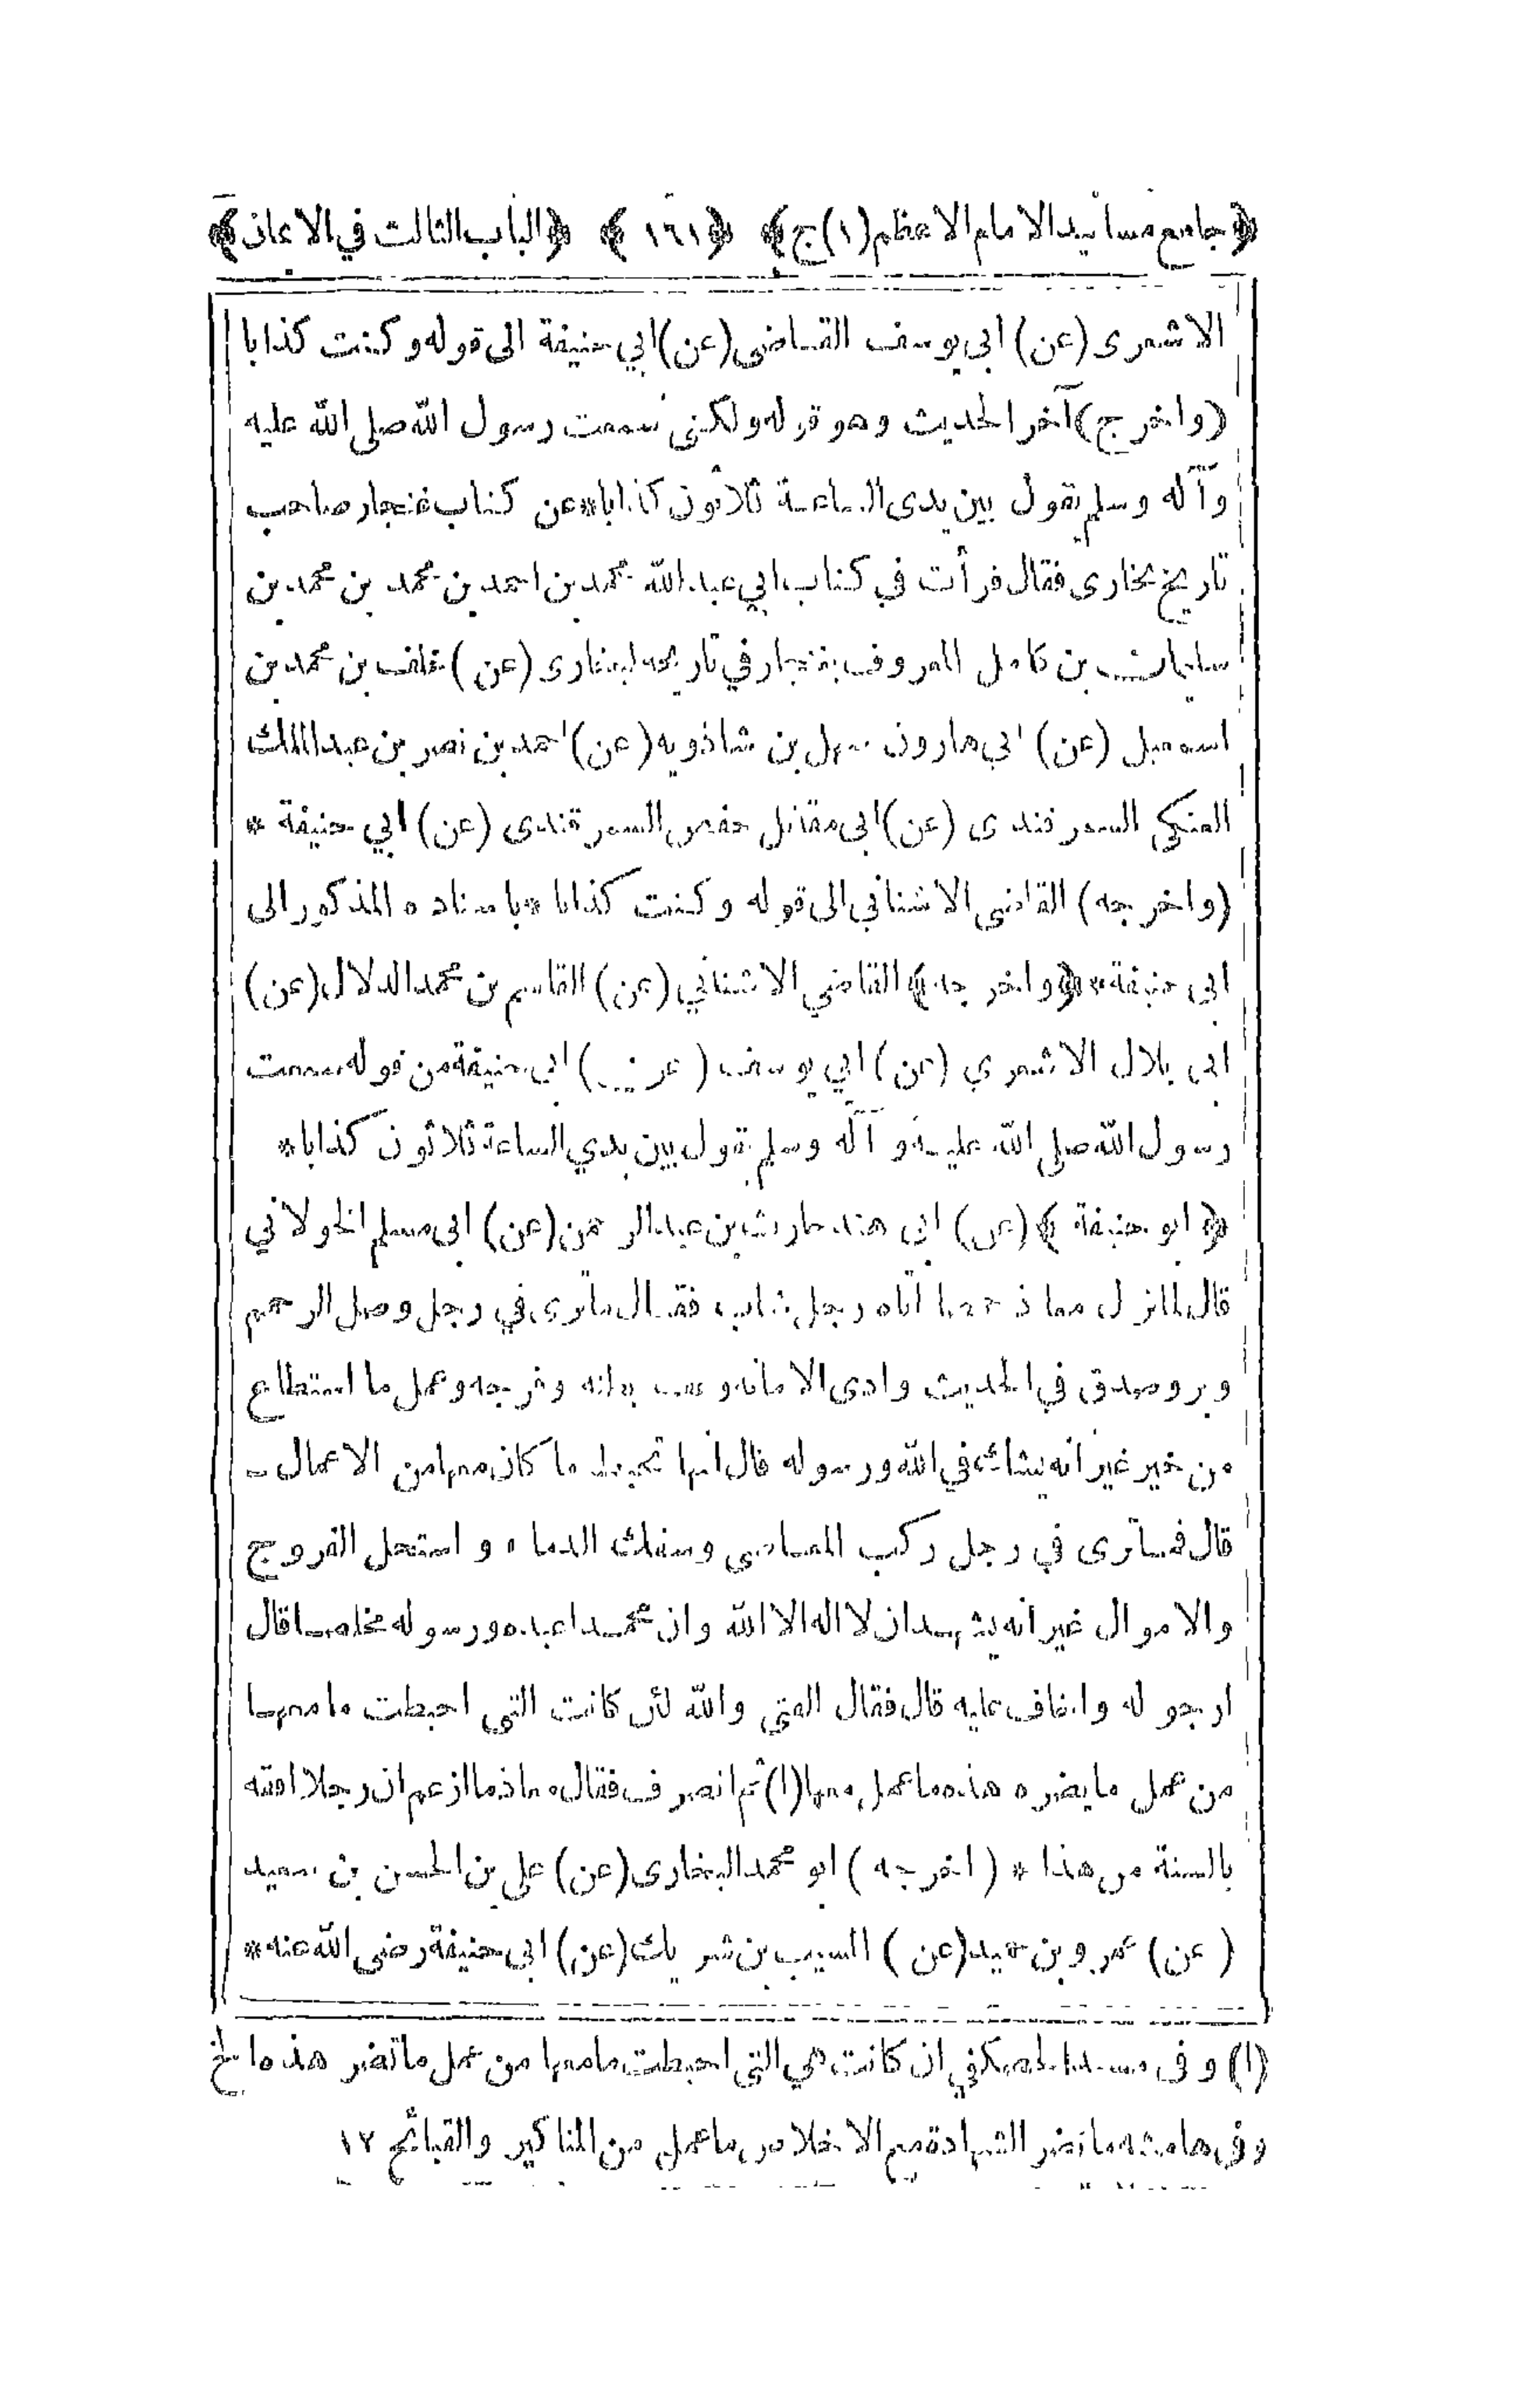 ﴿جامع مسانيد الامام الاعظم(١)ج﴾ ﴿١٦١﴾ ﴿الباب الثالث في الايمان﴾
الاشعرى (عن) ابى يوسف القاضى (عن) ابي حنيفة الى قوله وكنت كذابا
(واخرج) آخر الحديث وهو قوله ولكنى سمعت رسول الله صلى الله عليه
وآله وسلم يقول بين يدى الساعة ثلاثون كذابا * عن كتاب غنجار صاحب
تاريخ بخارى فقال قرأت في كتاب ابي عبد الله محمد بن احمد بن محمد بن محمد بن
سليمان بن كامل المعروف بغنجار في تاريخه لبخارى (عن) خلف بن محمد بن
اسمعيل (عن) ابي هارون سهل بن شاذويه (عن) احمد بن نصر بن عبد الملك
العتكى السمرقندى (عن) ابى مقاتل حفص السمرقندى (عن) ابي حنيفة *
(واخرجه) القاضى الاشنانى الى قوله وكنت كذابا * باسناده المذكور الى
ابى حنيفة * ﴿واخرجه﴾ القاضي الاشناني (عن) القاسم بن محمد الدلال (عن)
ابى بلال الاشعري (عن) ابي يوسف (عن) ابى حنيفة من قوله سمعت
رسول الله صلى الله عليه و آله وسلم يقول بين يدي الساعة ثلاثون كذابا *
﴿ابو حنيفة﴾ (عن) ابى هند حارث بن عبد الرحمن (عن) ابى مسلم الخولاني
قال لما نزل معاذ حمصا اتاه رجل شاب فقال ما ترى في رجل وصل الرحم
وبر وصدق في الحديث وادى الامانة وعف بطنه وفرجه وعمل ما استطاع
من خير غير انه يشك في الله ورسوله قال انها تحبط ما كان معها من الاعمال ـ
قال فما ترى في رجل ركب المعاصى وسفك الدماء و استحل الفروج
والاموال غير انه يشهد ان لا اله الا الله وان محمدا عبده ورسوله مخلصا قال
ارجو له واخاف عليه قال فقال الفتى والله لئن كانت التى احبطت ما معها
من عمل ما يضره هذه ما عمل معها (١) ثم انصرف فقال معاذ ما ازعم ان رجلا افقه
بالسنة من هذا * (اخرجه) ابو محمد البخارى (عن) على بن الحسن بن سعيد
(عن) عمرو بن حميد (عن) المسيب بن شريك (عن) ابى حنيفة رضى الله عنه *
(١) و فى مسند الحصكفي ان كانت هي التى احبطت ما معها من عمل ما تضر هذه ما الخ
وفى هامشه ما تضر الشهادة مع الاخلاص ما عمل من المناكير والقبائح ١٢